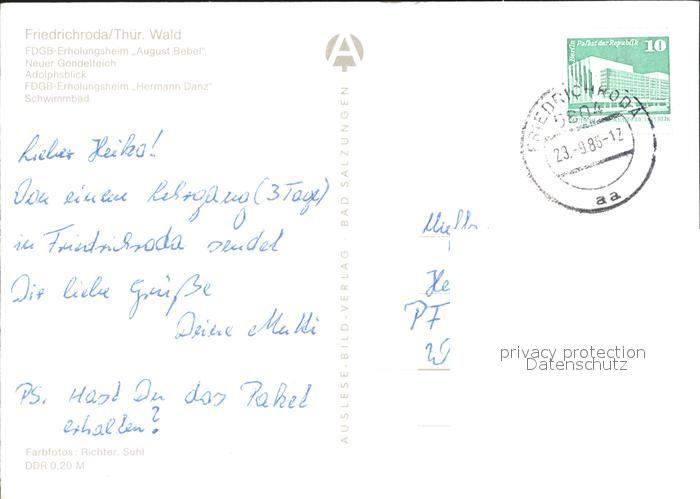 Friedrichroda/Thür. Wald
FDGB-Erholungsheim „August Bebel"
Neuer Gondelteich
Adolphsblick
FDGB-Erholungsheim „Hermann Danz"
Schwimmbad
Lieber Heiko!
Von einem Lehrgang (3 Tage)
in Friedrichroda sendet
Dir liebe Grüße
Deine Mutti
PS. Hast Du das Paket
erhalten?
Farbfotos: Richter, Suhl
DDR 0,20 M
AUSLESE-BILD-VERLAG · BAD SALZUNGEN
A
Berlin Palast der Republik 10
FRIEDRICHRODA
5804
23.-9.86-12
aa
He
PF
privacy protection
Datenschutz